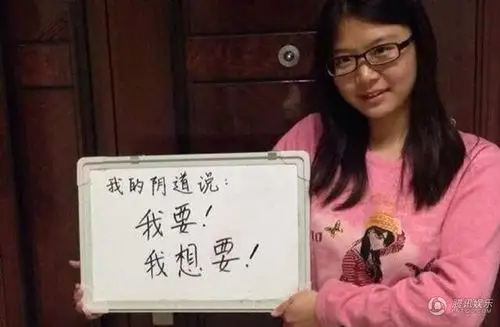 我的阴道说：
我要！
我想要！
腾讯娱乐